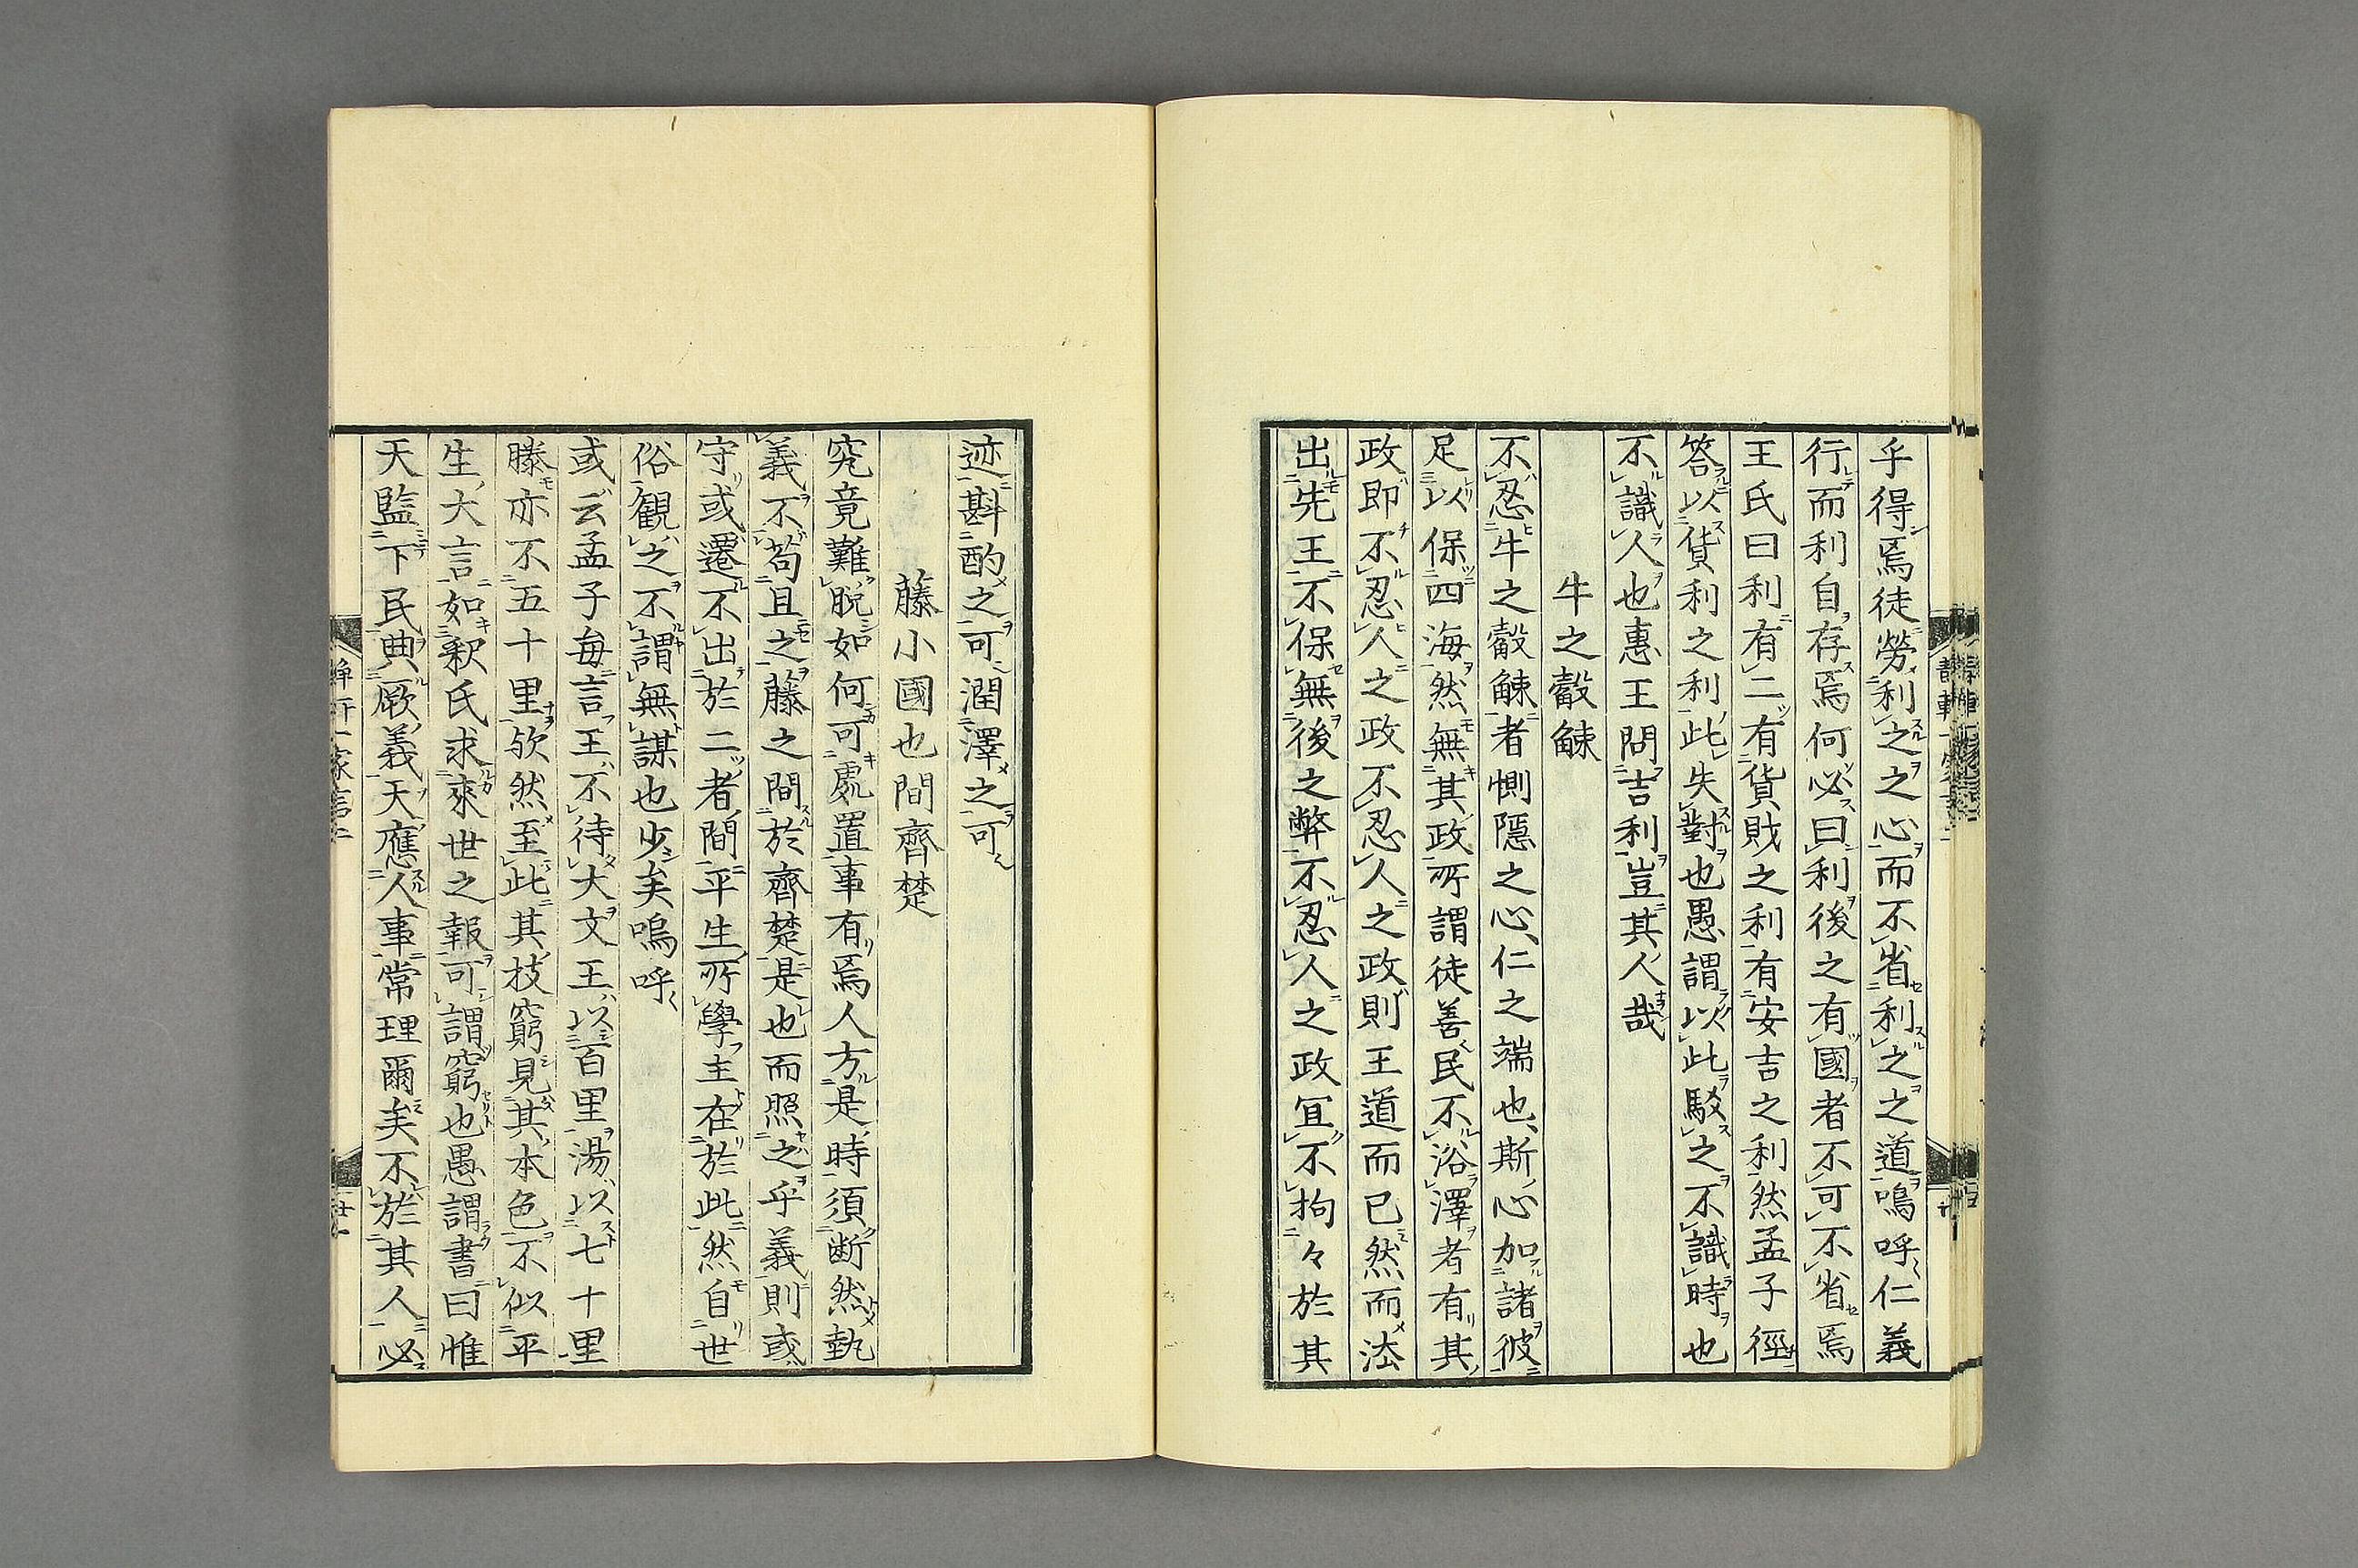 乎得焉徒勞利之之心而不省利之之道嗚呼仁義
行而利自存焉何必曰利後之有國者不可不省焉
王氏曰利有二有貨財之利有安吉之利然孟子徑
答以貨利之利此失對也愚謂以此駁之不識時也
不識人也惠王問吉利豈其人哉
牛之觳觫
不忍牛之觳觫者惻隱之心仁之端也斯心加諸彼
足以保四海然無其政所謂徒善民不浴澤者有其
政即不忍人之政不忍人之政則王道而已然而法
出先王不保無後之弊不忍人之政宜不拘々於其
迹斟酌之可潤澤之可
藤小國也間齊楚
究竟難脱如何可處置事有焉人方是時須断然執
義不苟且之藤之間於齊楚是也而照之乎義則或
守或遷不出於二者間平生所學主在於此然自世
俗観之不謂無謀也少矣嗚呼
或云孟子毎言王不待大文王以百里湯以七十里
滕亦不五十里欤然至此其技窮見其本色不似平
生大言如釈氏求來世之報可謂窮也愚謂書曰惟
天監下民典厥義天應人事常理爾矣不於其人必